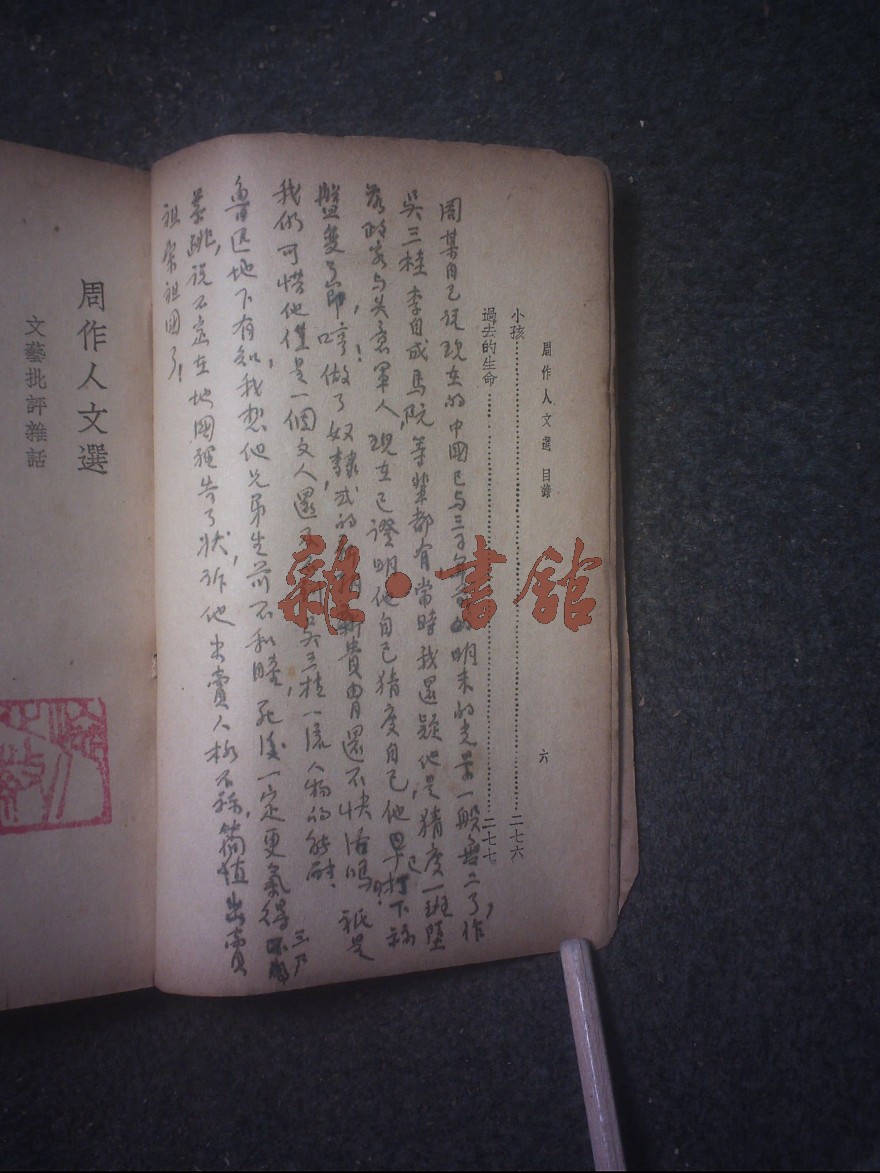 周作人文選 目錄 六
小孩 二七六
過去的生命 二七七
周某自己說現在的中國已与三百年前的明末的光景一般無二了，作
吳三桂李自成馬阮等輩都有當時我還疑他是猜度一班墮
落政客与失意軍人，現在已證明他自己猜度自己他早已打下稿
盤雙了！即哼做了奴隸式的新貴胄還不快活嗎！祇是
我們可惜他僅是一個文人還吳三桂一流人物的能耐。三乃
魯迅地下有知，我想他兄弟生前不和睦，死後一定更氣得
暴跳，說不定在地國裡告了狀，訴他出賣人格不稱，簡值出賣
祖宗祖國了！
雜·書館
周作人文選
文藝批評雜話